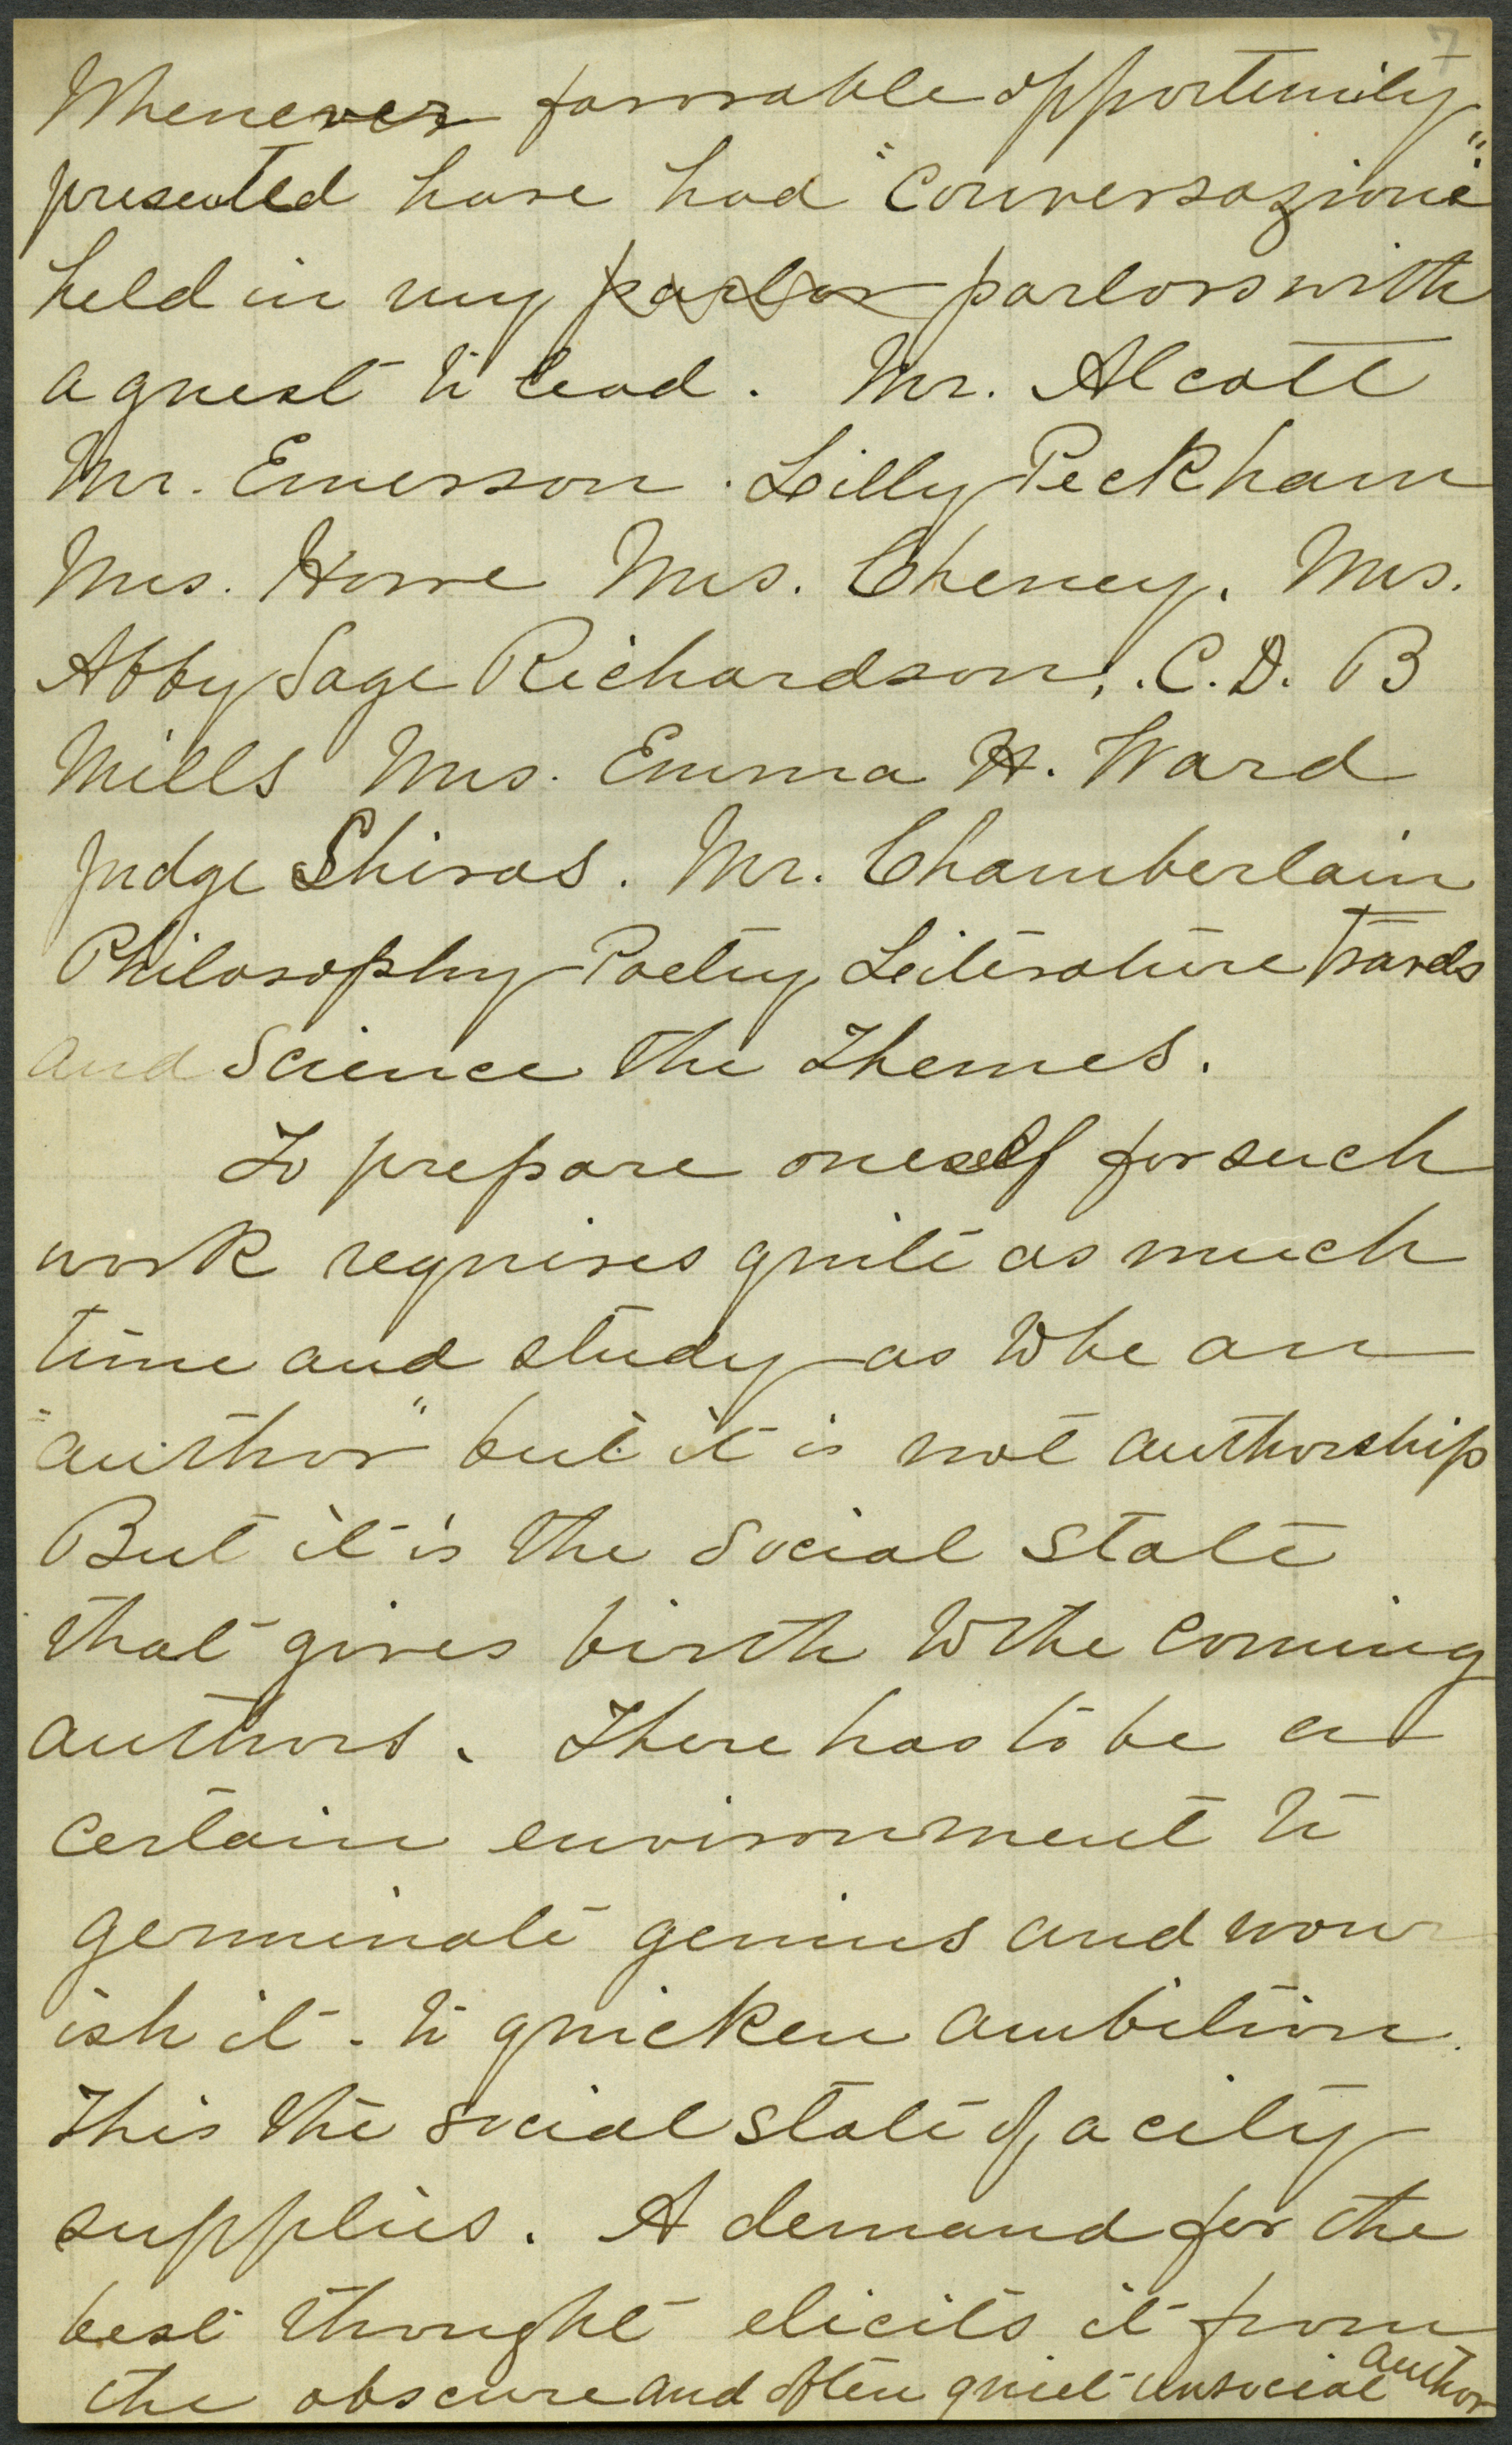 7
Whenever favorable opportunity
presented have had "Conversazione"
held in my parlor parlors with
a guest to lead. Mr. Alcott
Mr. Emerson. Lilly Peckham
Mrs. Howe Mrs. Cheney. Mrs.
Abby Sage Richardson, . C. D. B
Mills Mrs. Emma H. Ward
Judge Shiras. Mr. Chamberlain
Philosophy Poetry Literature Travels
and Science the Themes.
To prepare oneself for such
work requires quite as much
time and study as to be an
"author" but it is not authorship
But it is the Social State
that gives birth to the coming
authors. There has to be a
certain environment to
germinate genius and nour
ish it - to quicken ambition.
This the social state of a city
supplies. A demand for the
best thought elicits it from
the obscure and often quiet unsocial author